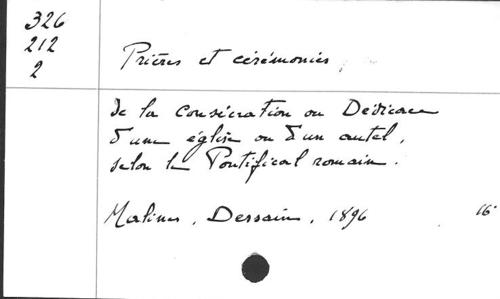 326
212
2
Prières et cérémonies
de la Consécration ou Dédicace
d'une église ou d'un autel,
selon le Pontifical romain.
Malines, Dessain, 1896 16°